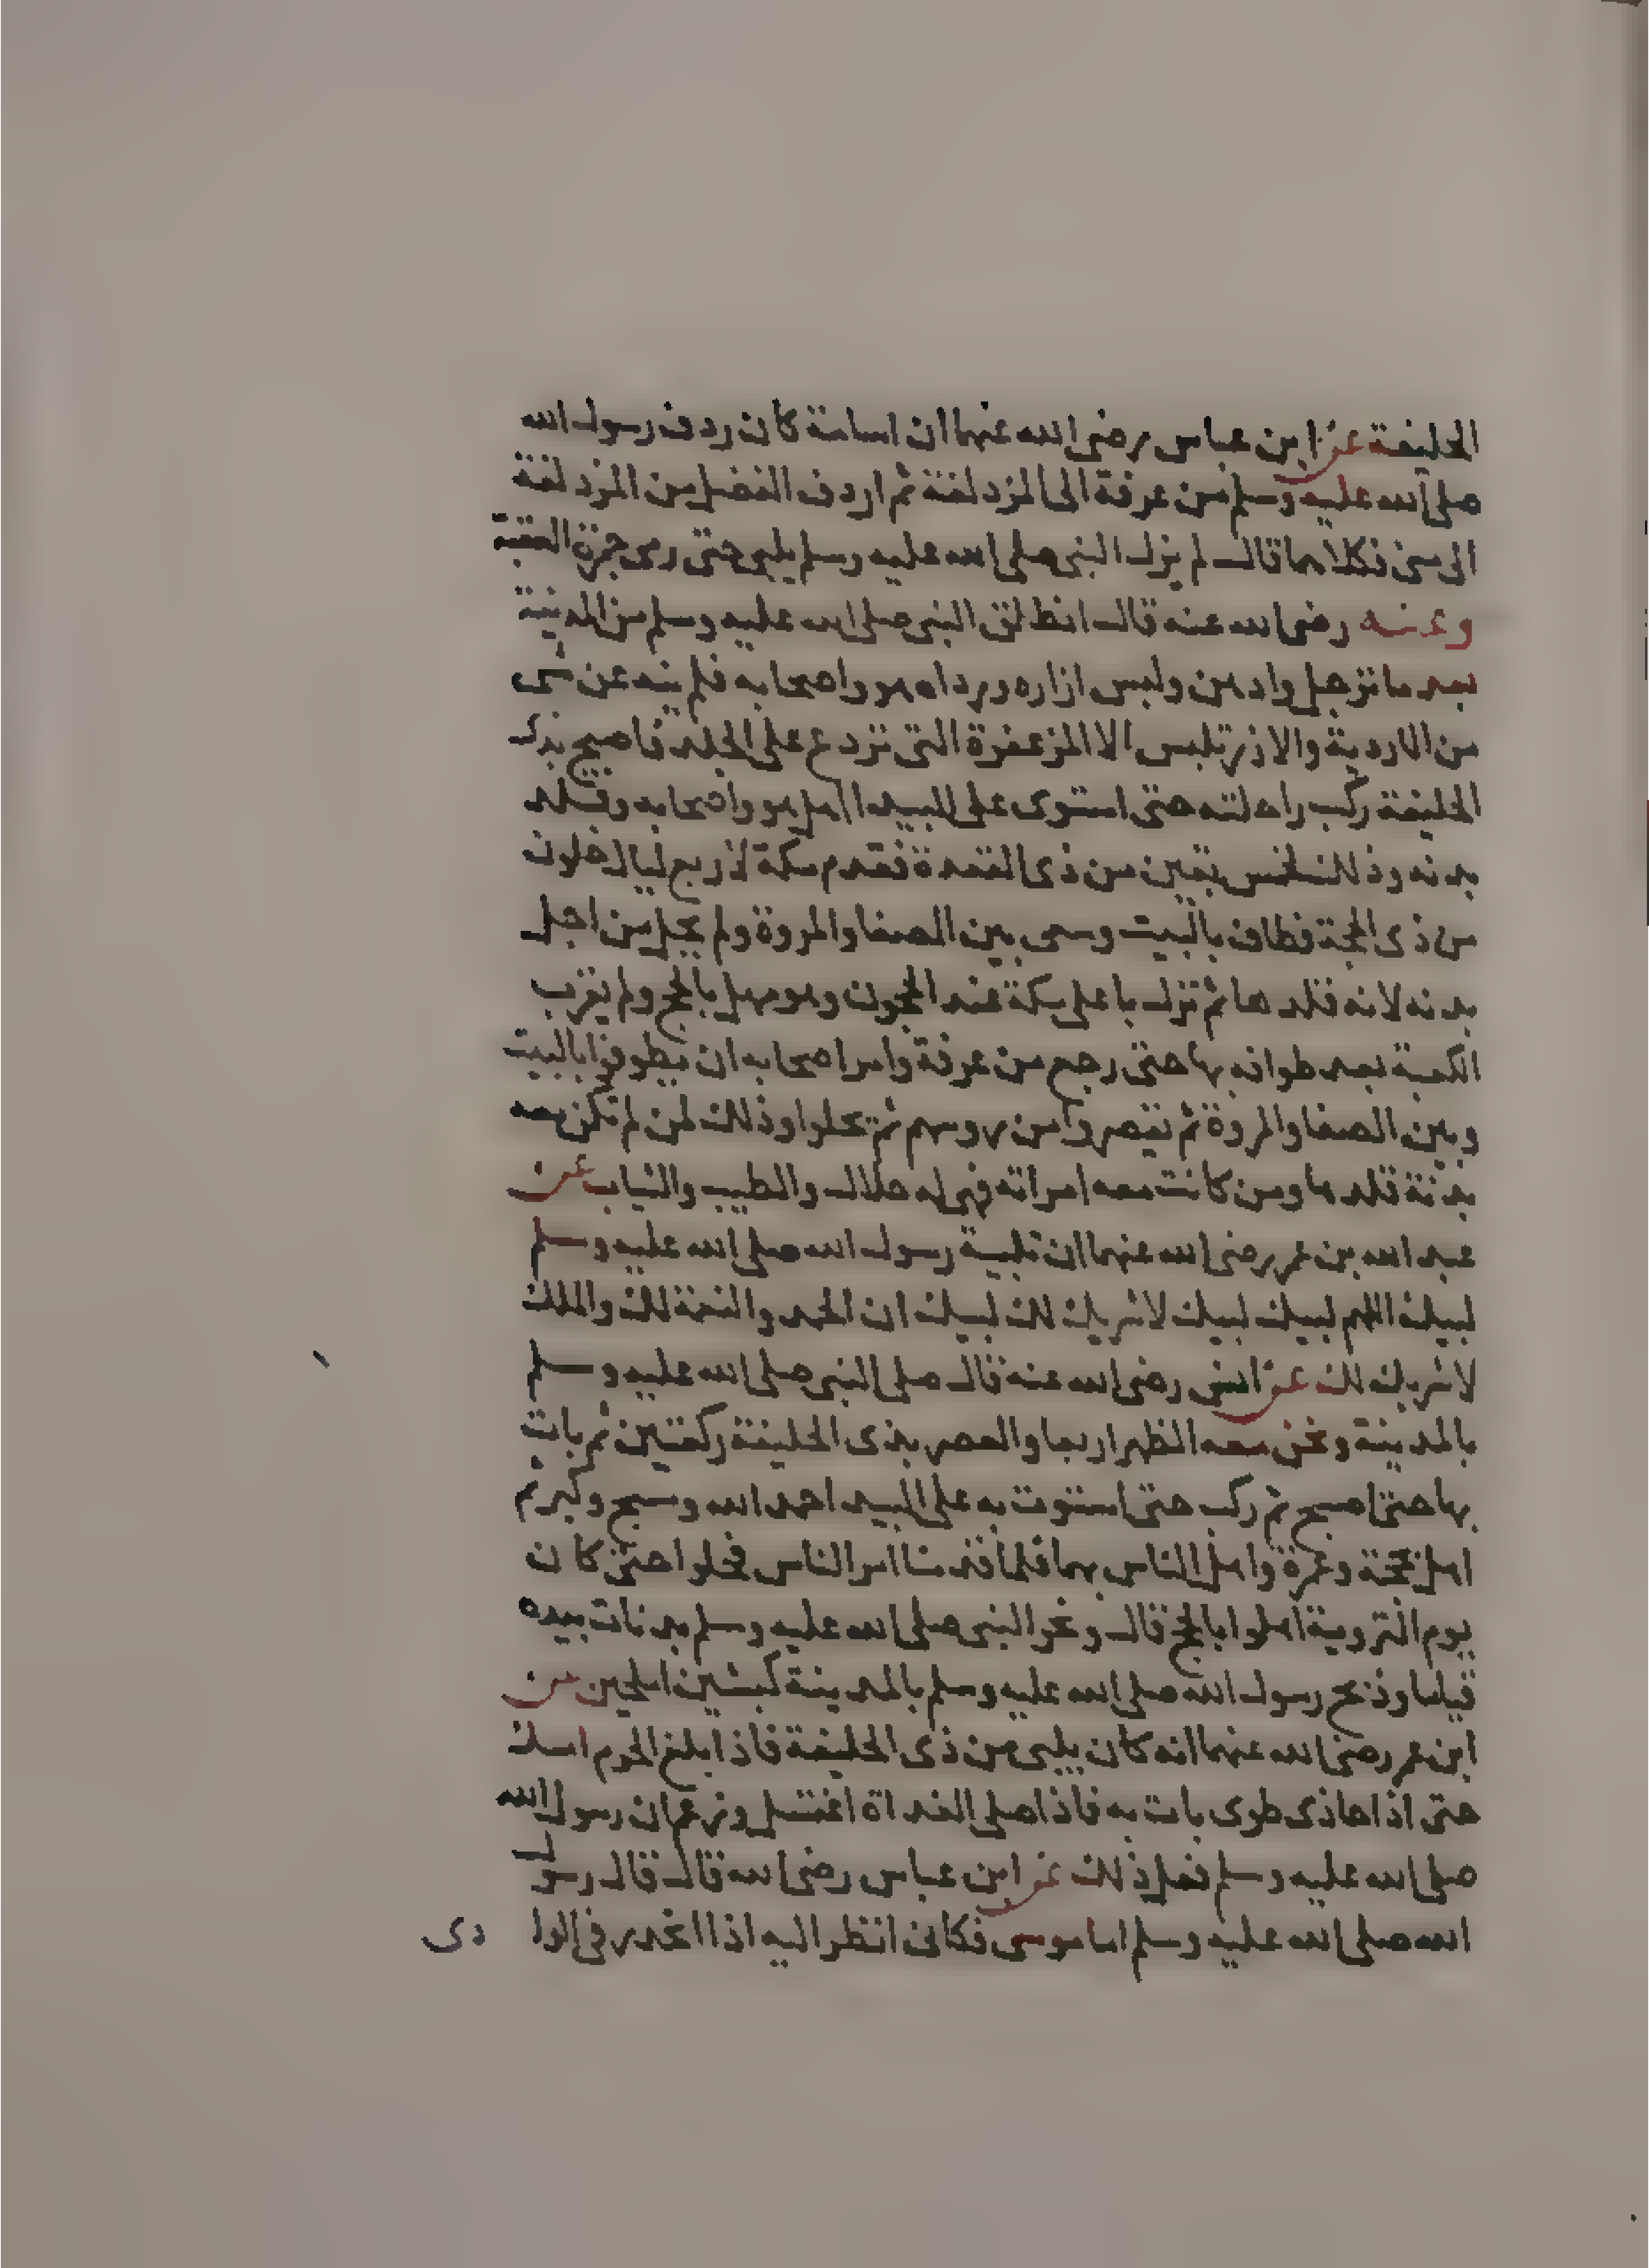 الحليفة عن ابن عباس رضى الله عنهما ان اسامة كان ردف رسول الله
صلى الله عليه وسلم من عرفة الى المزدلفة ثم اردف الفضل من المزدلفة
الى منى فكلاهما قال لم يزل النبى صلى الله عليه وسلم يلبى حتى رمى جمرة العقبة
وعنه رضى الله عنه قال انطلق النبى صلى الله عليه وسلم من المدينة
بعد ما ترجل وادهن ولبس ازاره ورداه هو واصحابه فلم ينه عن شى
من الاردية والازر تلبس الا المزعفرة التى تردع على الجلد فاصبح بذى
الحليفة ركب راحلته حتى استوى على البيدا اهل هو واصحابه وقلد
بدنه وذلك لخمس بقين من ذى القعدة فقدم مكة لاربع ليال خلون
من ذى الحجة فطاف بالبيت وسعى بين الصفا والمروة ولم يحل من اجل
بدنه لانه قلدها ثم نزل باعلى مكة عند الحجون وهو مهل بالحج ولم يقرب
الكعبة بعد طوافه بها حتى رجع من عرفة وامر اصحابه ان يطوفوا بالبيت
وبين الصفا والمروة ثم يقصروا من روسهم ثم يحلوا وذلك لمن لم تكن معه
بدنة قلدها ومن كانت معه امراته فهى له حلال والطيب والثياب عن
عبد الله بن عمر رضى الله عنهما ان تلبية رسول الله صلى الله عليه وسلم
لبيك اللهم لبيك لبيك لا شريك لك لبيك ان الحمد والنعمة لك والملك
لا شريك لك عن انس رضى الله عنه قال صلى النبى صلى الله عليه وسلم
بالمدينة ونحن معه الظهر اربعا والعصر بذى الحليفة ركعتين ثم بات
بها حتى اصبح ثم ركب حتى استوت به على البيدا حمد الله وسبح وكبر ثم
اهل بحجة وعمرة واهل الناس بهما فلما قدمنا امر الناس فحلوا حتى كان
يوم التروية اهلوا بالحج قال ونحر النبى صلى الله عليه وسلم بدنات بيده
قياما وذبح رسول الله صلى الله عليه وسلم بالمدينة كبشين املحين عن
ابن عمر رضى الله عنهما انه كان يلبى من ذى الحليفة فاذا بلغ الحرم امسك
حتى اذا حاذى طوى بات به فاذا صلى الغداة اغتسل وزعم ان رسول الله
صلى الله عليه وسلم فعل ذلك عن ابن عباس رضى الله قال قال رسول
الله صلى الله عليه وسلم اما موسى فكانى انظر اليه اذا انحدر فى الوا دى